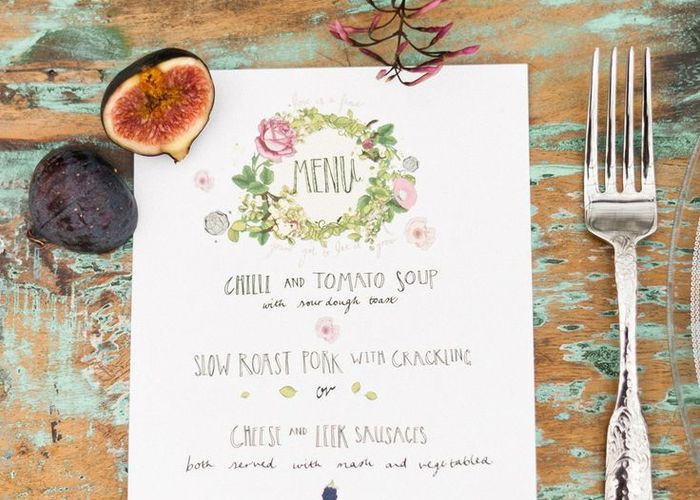 love is a fine
MENU
you've got to let it grow
CHILLI AND TOMATO SOUP
with sour dough toast
SLOW ROAST PORK WITH CRACKLING
or
CHEESE AND LEEK SAUSAGES
both served with mash and vegetables